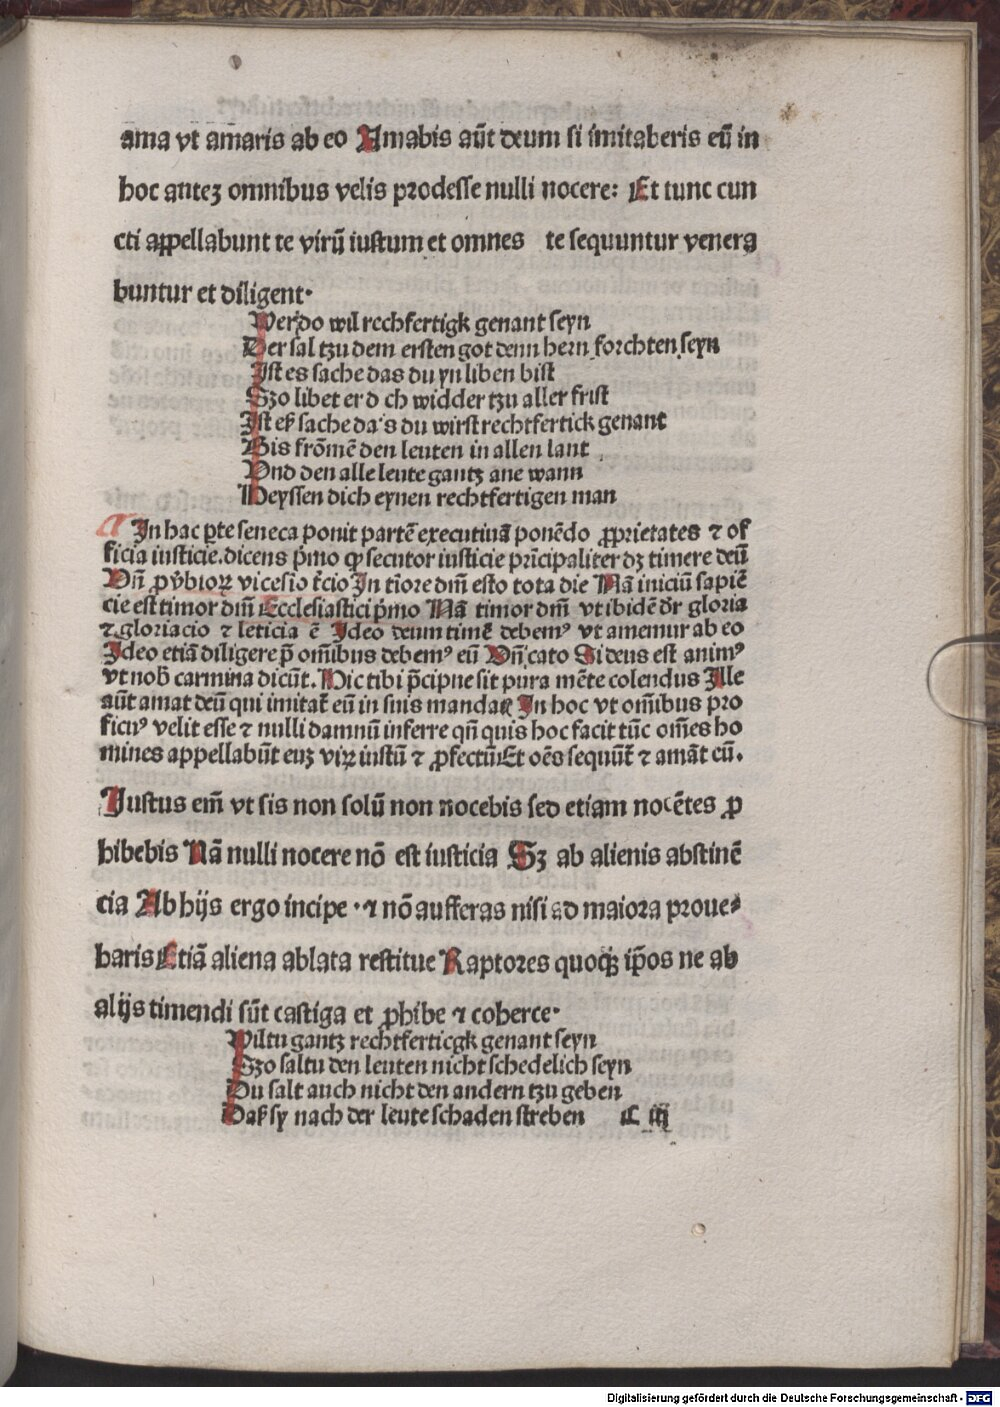 ama vt am̄aris ab eo Amabis aūt deum si imitaberis eū in
hoc auteꝫ omnibus velis prodesse nulli nocere: Et tunc cun
cti appellabunt te virū iustum et omnes te sequuntur venera
buntur et diligent·
Wer do wil rechfertigk genant seyn
Der sal tzu dem ersten got denn hern forchten seyn
Ist es sache das du yn liben bist
Szo libet er d ch widder tzu aller frist
Ist eß sache da's du wirst rechtfertick genant
Bis frōmē den leuten in allen lant
Vnd den alle leute gantz ane wann
Heyssen dich eynen rechtfertigen man
In hac ꝑte seneca ponit partē executiuā ponēdo ꝓprietates ⁊ of
ficia iusticie. dicens p̄mo ꝙ secutor iusticie prīcipaliter dꝫ timere deū
Vn̄ ꝓv̄bioꝝ vicesio t̄cio In tīore dn̄i esto tota die Nā iniciū sapiē
cie est timor dn̄i Ecclesiastici p̄mo Nā timor dn̄i vt ibidē dr̄ gloria
⁊ gloriacio ⁊ leticia ē Ideo deum timē debemꝰ vt amemur ab eo
Ideo etiā diligere p̄ om̄ibus debemꝰ eū Vn̄ cato Si deus est animꝰ
vt nob̄ carmina dicūt. Hic tibi p̄cipue sit pura mēte colendus Ille
aūt amat deū qui imitat̄ eū in suis mandaꝭ In hoc vt om̄ibus pro
ficuꝰ velit esse ⁊ nulli damnū inferre qn̄ quis hoc facit tūc om̄es ho
mines appellabūt euꝫ viꝝ iustū ⁊ ꝑfectū Et oēs sequūt̄ ⁊ amāt eū.
Iustus em̄ vt sis non solū non nocebis sed etiam nocētes ꝓ
hibebis Nā nulli nocere nō est iusticia Sꝫ ab alienis abstinē
cia Ab hijs ergo incipe · ⁊ nō aufferas nisi ad maiora proue⸗
baris Etiā aliena ablata restitue Raptores quoqꝫ ip̄os ne ab
alijs timendi sūt castiga et ꝓhibe ⁊ coherce·
Wiltu gantz rechtferticgk genant seyn
Szo saltu den leuten nicht schedelich seyn
Du salt auch nicht den andern tzu geben
Daß sy nach der leute schaden streben C iij
Digitalisierung gefördert durch die Deutsche Forschungsgemeinschaft - DFG